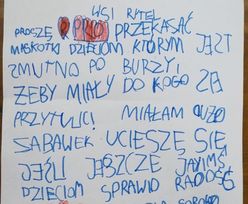 WSI RYTEL
PROSZĘ O PRZEKAZAĆ
MASKOTKI DZIECIOM KTÓRYM JEST
SMUTNO PO BURZY
ŻEBY MIAŁY DO KOGO SIĘ
PRZYTULIĆ! MIAŁAM DUŻO
ZABAWEK UCIESZĘ SIĘ
JEŚLI JESZCZE JAKIMŚ
DZIECIOM SPRAWIĄ RADOŚĆ